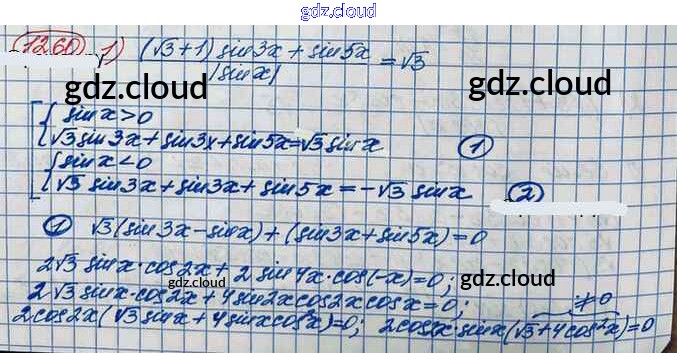 gdz.cloud
1260 1) ((√3+1) sin3x + sin5x)/|sinx| = √3
gdz.cloud gdz.cloud
{ sinx>0
√3sin3x+sin3x+sin5x=√3sinx ①
{ sinx<0
√3 sin3x+sin3x+sin5x=-√3 sinx ②
① √3(sin3x-sinx)+(sin3x+sin5x)=0
2√3 sinx·cos2x+2sin4x·cos(-x)=0;
gdz.cloud gdz.cloud
2√3sinx·cos2x+4sin2xcos2xcosx=0; ≠0
2cos2x(√3sinx+4sinxcos²x)=0; 2cos2x·sinx(√3+4cos²x)=0
gdz.cloud